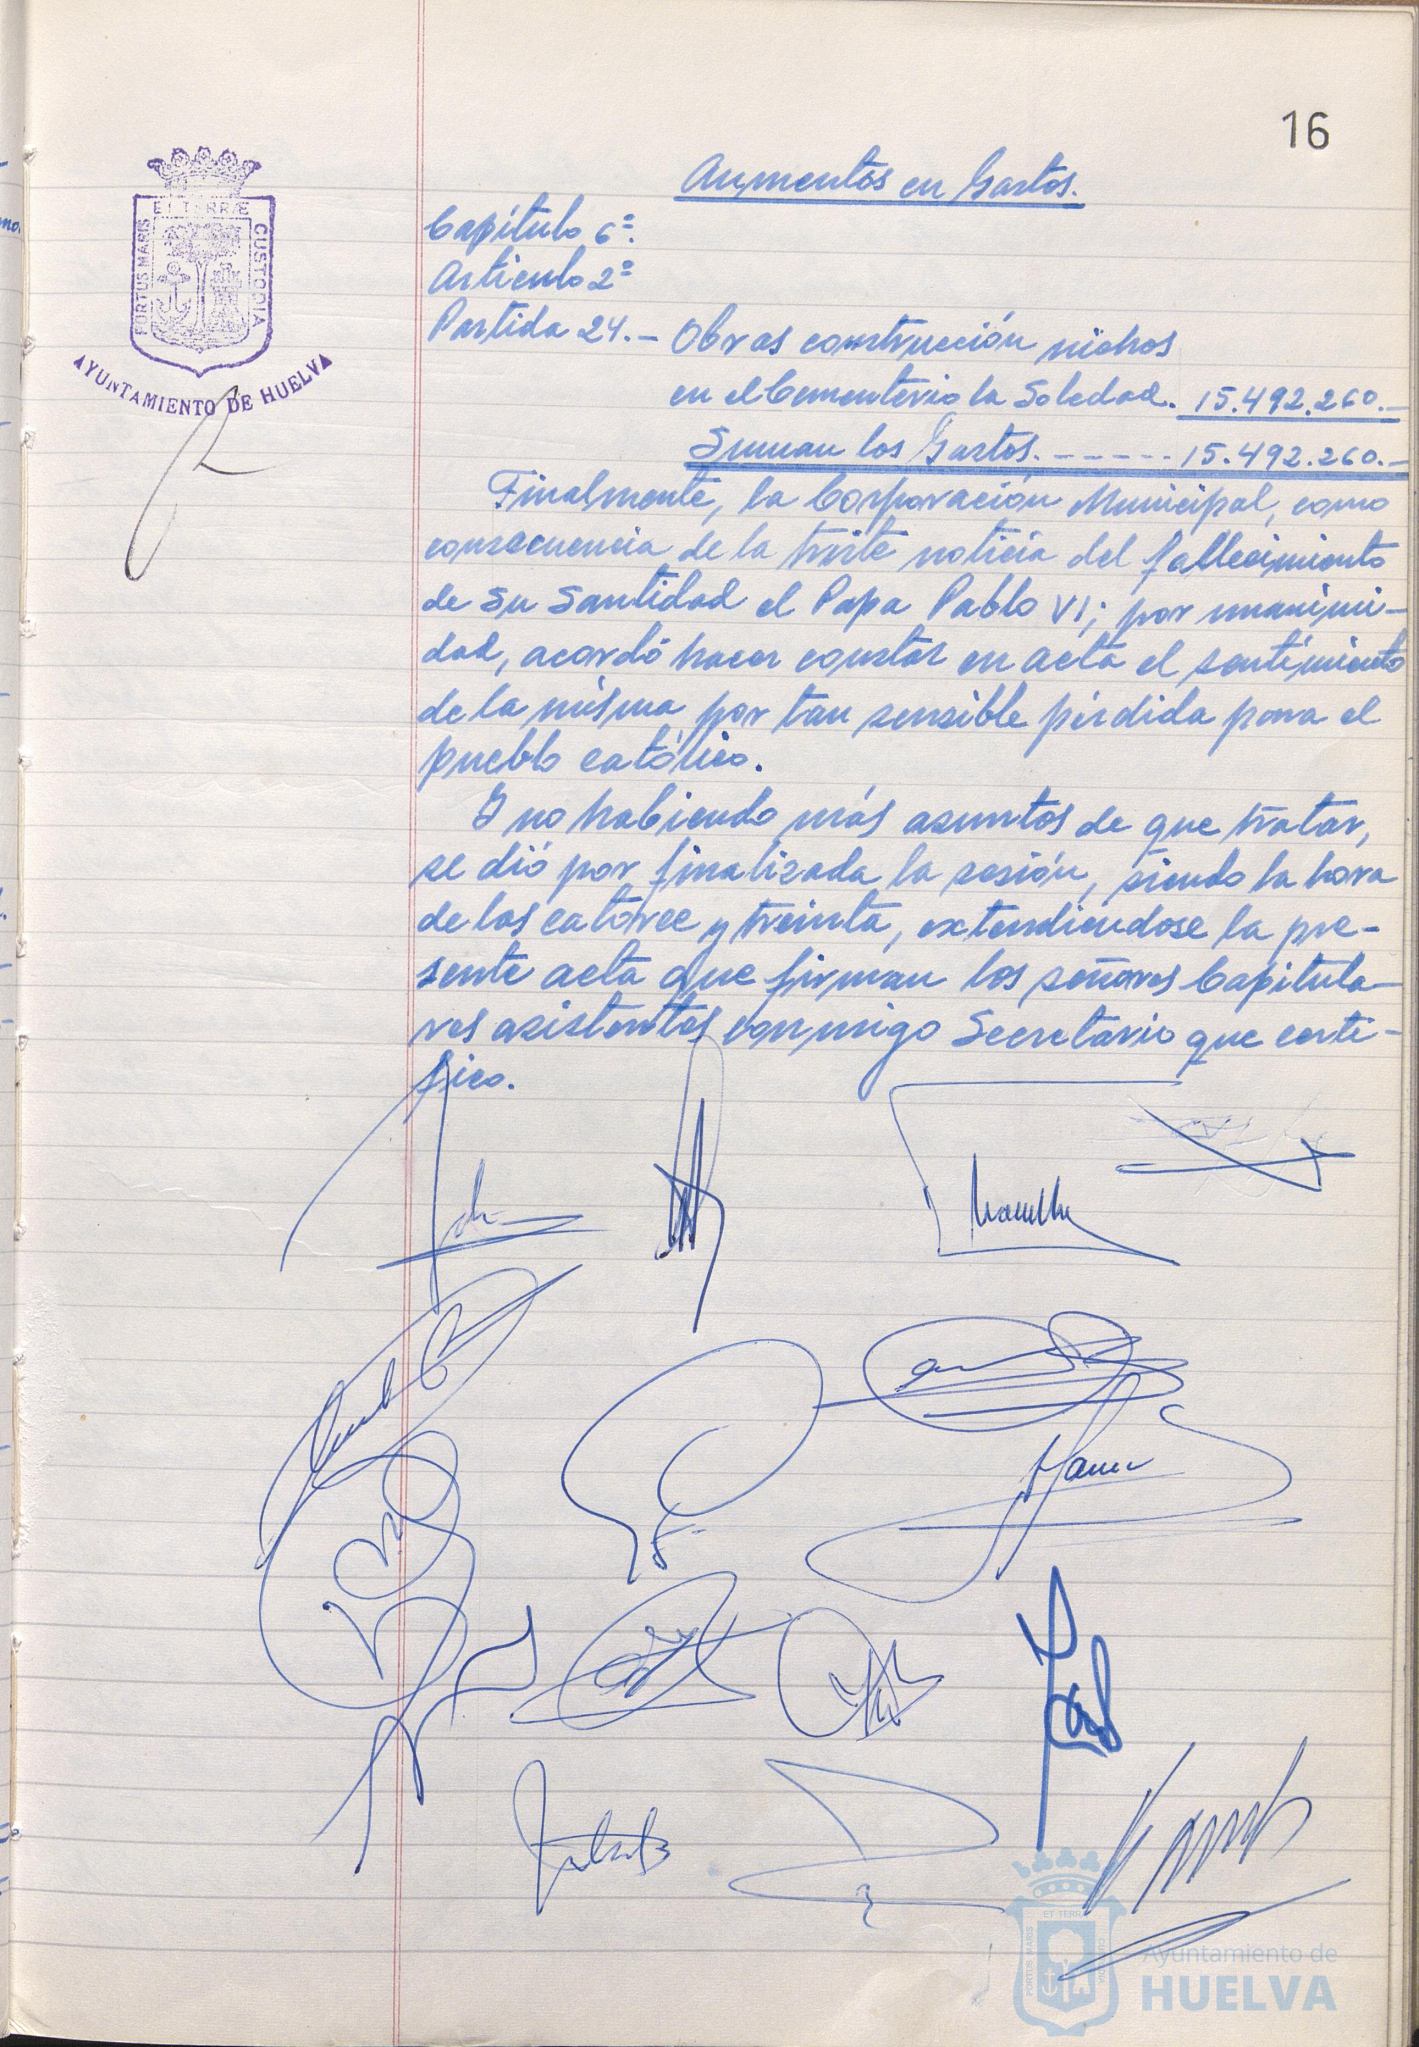 16
PORTUS MARIS
ET TERRÆ
CUSTODIA
AYUNTAMIENTO DE HUELVA
Aumentos en Gastos.
Capítulo 6º.
Artículo 2º
Partida 24.- Obras construcción nichos
en el Cementerio la Soledad. 15.492.260.-
Suman los Gastos. ----- 15.492.260.-
Finalmente, la Corporación Municipal, como
consecuencia de la triste noticia del fallecimiento
de Su Santidad el Papa Pablo VI; por unanimi-
dad, acordó hacer constar en acta el sentimiento
de la misma por tan sensible pérdida para el
pueblo católico.
Y no habiendo más asuntos de que tratar,
se dió por finalizada la sesión, siendo la hora
de las catorce y treinta, extendiendose la pre-
sente acta que firman los señores Capitula-
res asistentes conmigo Secretario que certi-
fico.
PORTUS MARIS
ET TERRÆ
CUSTODIA
Ayuntamiento de
HUELVA